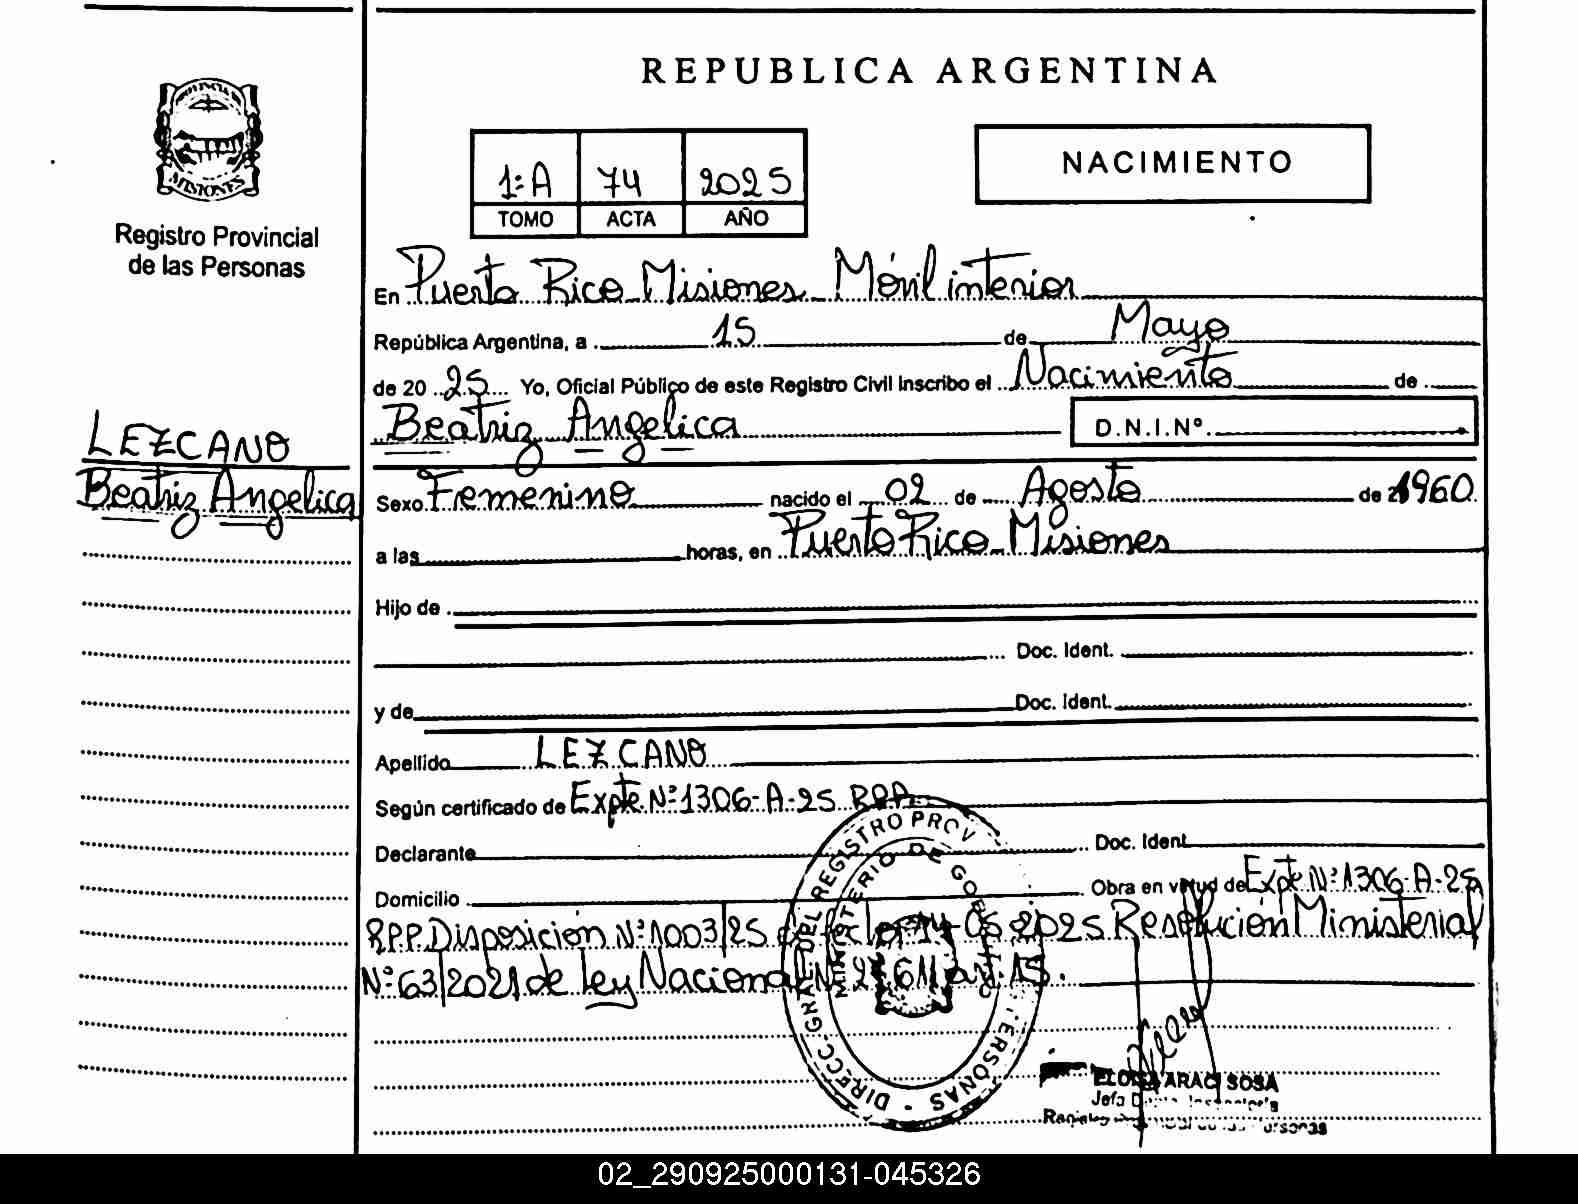 REPUBLICA ARGENTINA
PROVINCIA DE
MISIONES
Registro Provincial
de las Personas
1:A 74 2025
TOMO ACTA AÑO
NACIMIENTO
En Puerto Rico Misiones Móvil interior
República Argentina, a 15 de Mayo
de 20 25 Yo, Oficial Público de este Registro Civil Inscribo el Nacimiento de
Beatriz Angelica D.N.I.Nº
LEZCANO
Beatriz Angelica
Sexo Femenino nacido el 02 de Agosto de 1960
a las horas, en Puerto Rico Misiones
Hijo de
Doc. Ident.
y de Doc. Ident.
Apellido LEZCANO
Según certificado de Expte. Nº 1306-A-25
Declarante Doc. Ident.
Domicilio Obra en virtud de Expte Nº 1306-A-25
R.P.P. Disposición Nº 1003/25 de fecha 14-05-2025 Resolución Ministerial
Nº 63/2021 de Ley Nacional Nº 27611 art 15.
DIRECC. GRAL DEL REGISTRO PROV PERSONAS
MINISTERIO DE GOBIERNO
ELOISA ARACI SOSA
Jefa
Personas
02_290925000131-045326